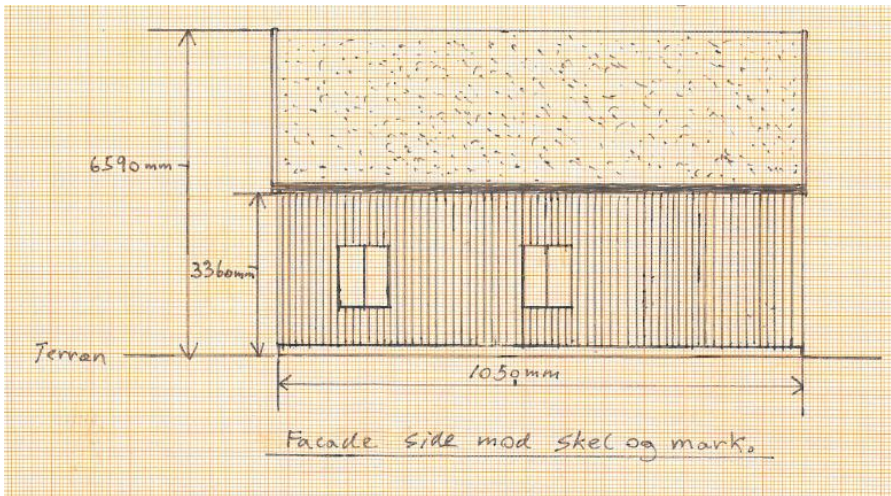 6590mm
3360mm
Terræn
1050mm
Facade side mod skel og mark.